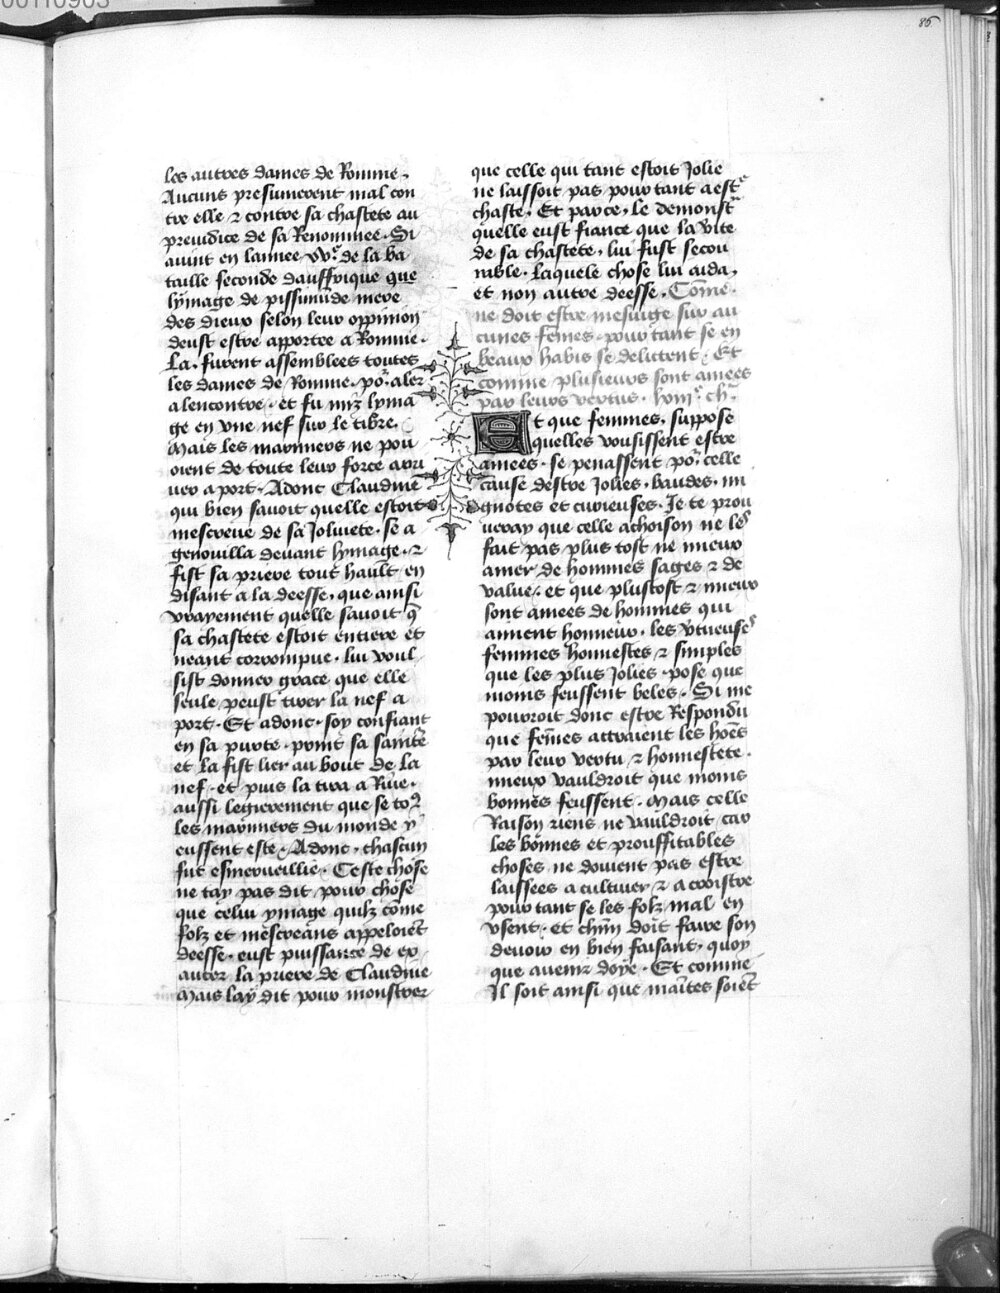 00110903
85
les autres dames de Romme.
Aucuns presumerent mal con
tre elle ⁊ contre sa chastete au
preiudice de sa Renommee. Si
auint en lannee xv.e de la ba
taille seconde dauffrique que
lymage de pissimide mere
des dieux selon leur oppinion
deust estre apportee a Romme.
La. furent assemblees toutes
les dames de Romme. po.r aler
alencontre. et fu mis lyma
ge en vne nef sur le tibre.
Mais les maronniers ne pou
oient de toute leur force arri
uer a port. Adonc Claudine
qui bien sauoit quelle estoit
mescreue de sa Joliuete. se a
genouilla deuant lymage. ⁊
fist sa priere tout hault en
disant a la deesse. que ainsi
vrayement quelle sauoit q̃
sa chastete estoit entiere et
neant corrompue. lui voul
sist donner grace que elle
seule peust tirer la nef a
port. Et adonc. soy confiant
en sa purte. print sa sainte
et la fist lier au bout de la
nef. et puis la tira a Riue.
aussi legierement que se to.9
les maronniers du monde y
eussent este. Adonc. chascun
fut esmerueillie. Ceste chose
ne tay pas dit pour chose
que celui ymage quilz come
folz et mescreans appeloiẽt
deesse. eust puissance de ex
aucer la priere de Claudine
Mais lay dit pour monstrer
que celle qui tant estoit Jolie
ne laissoit pas pour tant a estr̃
chaste. Et par ce. le demonst.
quelle eust fiance que la v̓ite
de sa chastete. lui fust secou
rable. Laquele chose lui aida.
et non autre deesse. Com̃e.
ne doit estre mesuige sur au
cunes fem̃es. pour tant se en
beaux habis se delittent. Et
comme plusieurs sont amees
par leurs vertus. lxiii.e ch.e
Et que femmes. suppose
quelles vousissent estre
amees. se penassent po.r celle
cause destre Jolies. baudes. mi
gnotes et curieuses. Je te prou
ueray que celle achoison ne les
fait pas plus tost ne mieux
amer de hommes sages ⁊ de
value. et que plustost ⁊ mieux
sont amees de hommes qui
aiment honneur. les v̓tueuses
femmes honnestes ⁊ simples
que les plus Jolies. pose que
moins feussent beles. Si me
pourroit donc estre Respondu
que fem̃es attraient les hom̃es
par leur vertu ⁊ honnestete.
mieux vauldroit que moins
bonnes feussent. Mais celle
Raison riens ne vauldroit car
les bonnes et prouffitables
choses ne doiuent pas estre
laissees a cultiuer ⁊ a croistre
pour tant se les folz mal en
vsent. et ch̃un doit faire son
deuoir en bien faisant. quoy
que auenir doye. Et comme
Il soit ainsi que maĩtes soiẽt